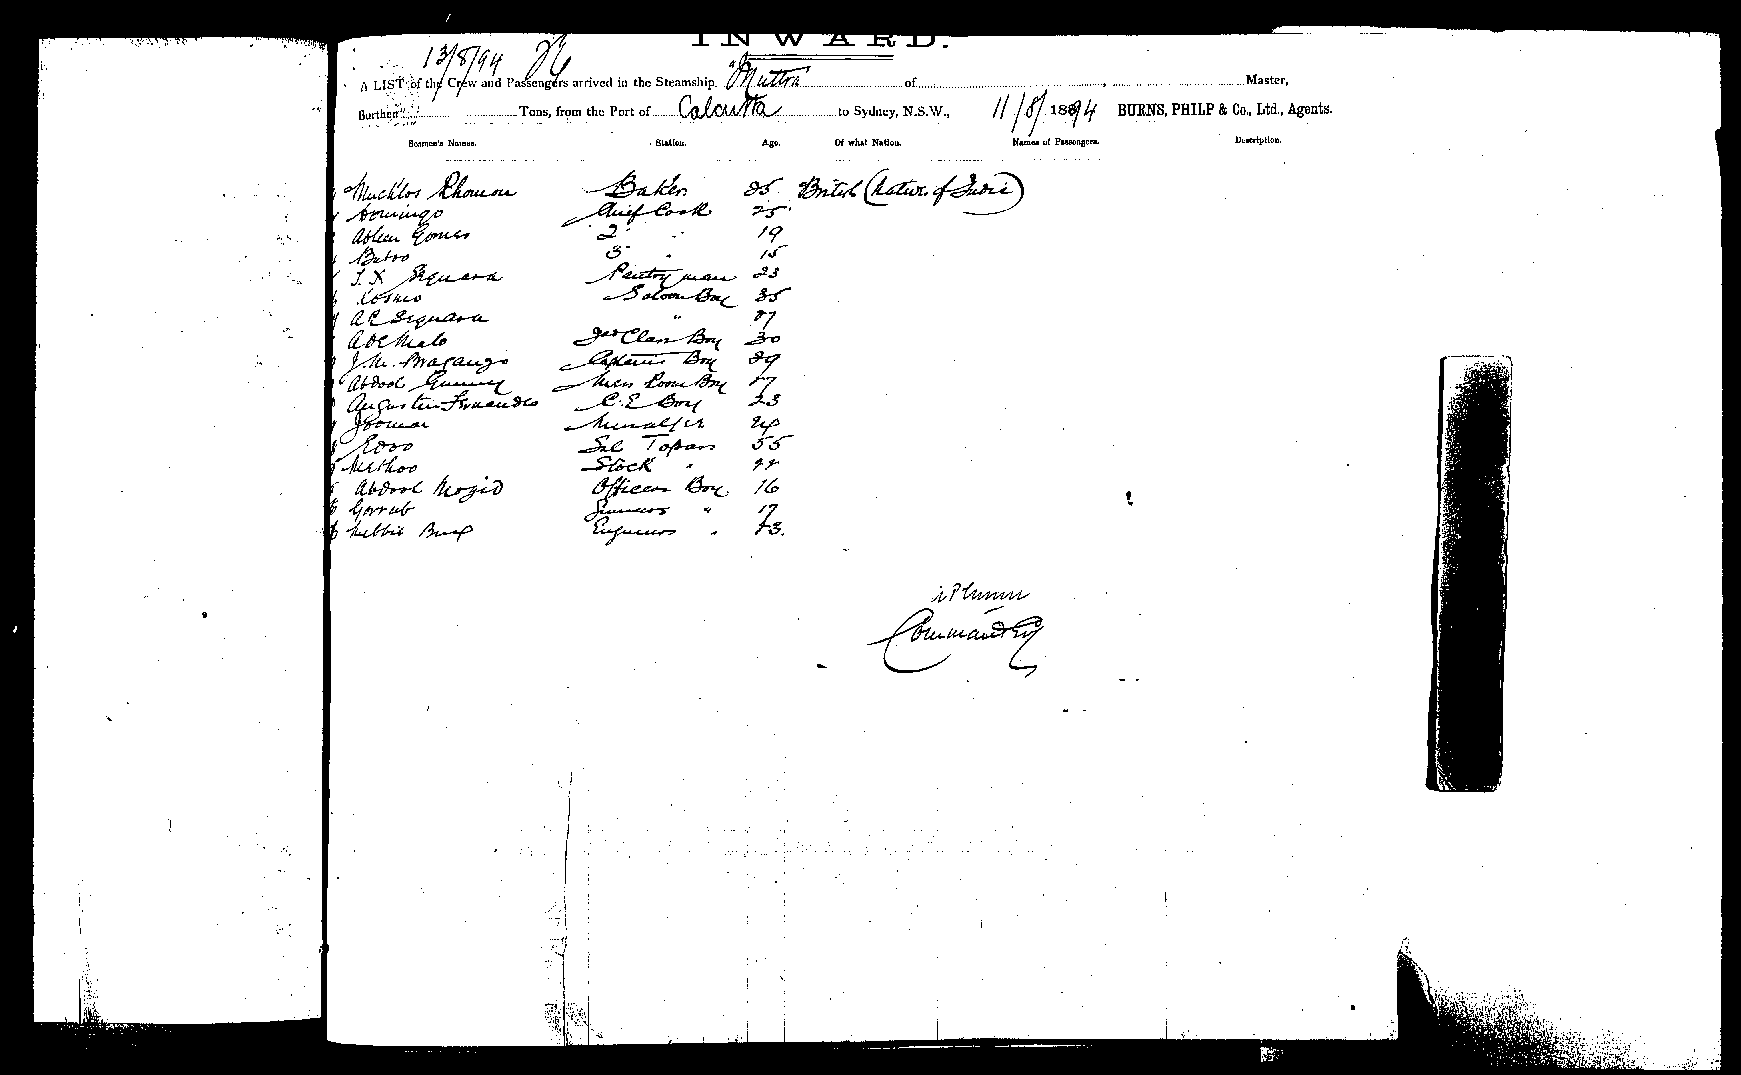 INWARD.
13/8/94
A LIST of the Crew and Passengers arrived in the Steamship "Muttra" of Master,
Burthen Tons, from the Port of Calcutta to Sydney, N.S.W., 11/8/1894 BURNS, PHILP & Co., Ltd., Agents.
Seamen's Names. Station. Age. Of what Nation. Names of Passengers. Description.
Mucklos Rhomon Baker 35 British (Natives of India)
Domingo Chief Cook 25
Gomes 2 " 19
3 " 15
F. X Sequera Pantry man 23
Kosmo Saloon Boy 35
A C Sequara "
A De Melo 2nd Class Boy 30
J. M. Braganzo Captains Boy 29
Abdool Gunny Mess Room Boy
Augustin Fernandes C. E Boy 23
Joomar
Sal Topass 55
Stock "
Abdool Mozid Officers Boy 16
Gorrub " 17
Nubbie Bux Engineers "
Commander